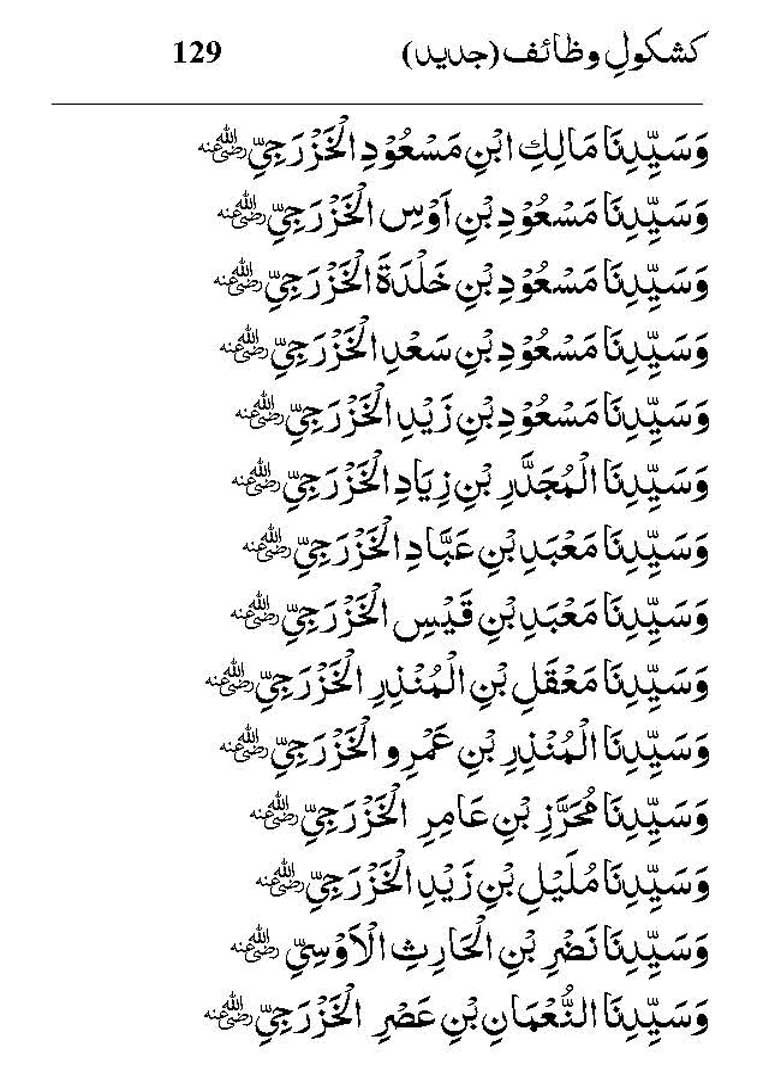 كشكولِ وظائف (جديد) 129
وَسَيِّدِنَا مَالِكِ ابْنِ مَسْعُوْدِ الْخَزْرَجِيِّ رضي الله عنه
وَسَيِّدِنَا مَسْعُوْدِ بْنِ اَوْسِ الْخَزْرَجِيِّ رضي الله عنه
وَسَيِّدِنَا مَسْعُوْدِ بْنِ خَلْدَةَ الْخَزْرَجِيِّ رضي الله عنه
وَسَيِّدِنَا مَسْعُوْدِ بْنِ سَعْدِ الْخَزْرَجِيِّ رضي الله عنه
وَسَيِّدِنَا مَسْعُوْدِ بْنِ زَيْدِ الْخَزْرَجِيِّ رضي الله عنه
وَسَيِّدِنَا الْمُجَذَّرِ بْنِ زِيَادِ الْخَزْرَجِيِّ رضي الله عنه
وَسَيِّدِنَا مَعْبَدِ بْنِ عَبَّادِ الْخَزْرَجِيِّ رضي الله عنه
وَسَيِّدِنَا مَعْبَدِ بْنِ قَيْسِ الْخَزْرَجِيِّ رضي الله عنه
وَسَيِّدِنَا مَعْقَلِ بْنِ الْمُنْذِرِ الْخَزْرَجِيِّ رضي الله عنه
وَسَيِّدِنَا الْمُنْذِرِ بْنِ عَمْرِو الْخَزْرَجِيِّ رضي الله عنه
وَسَيِّدِنَا مُحَرَّزِ بْنِ عَامِرِ الْخَزْرَجِيِّ رضي الله عنه
وَسَيِّدِنَا مُلَيْلِ بْنِ زَيْدِ الْخَزْرَجِيِّ رضي الله عنه
وَسَيِّدِنَا نَضْرِ بْنِ الْحَارِثِ الْاَوْسِيِّ رضي الله عنه
وَسَيِّدِنَا النُّعْمَانِ بْنِ عَصْرِ الْخَزْرَجِيِّ رضي الله عنه